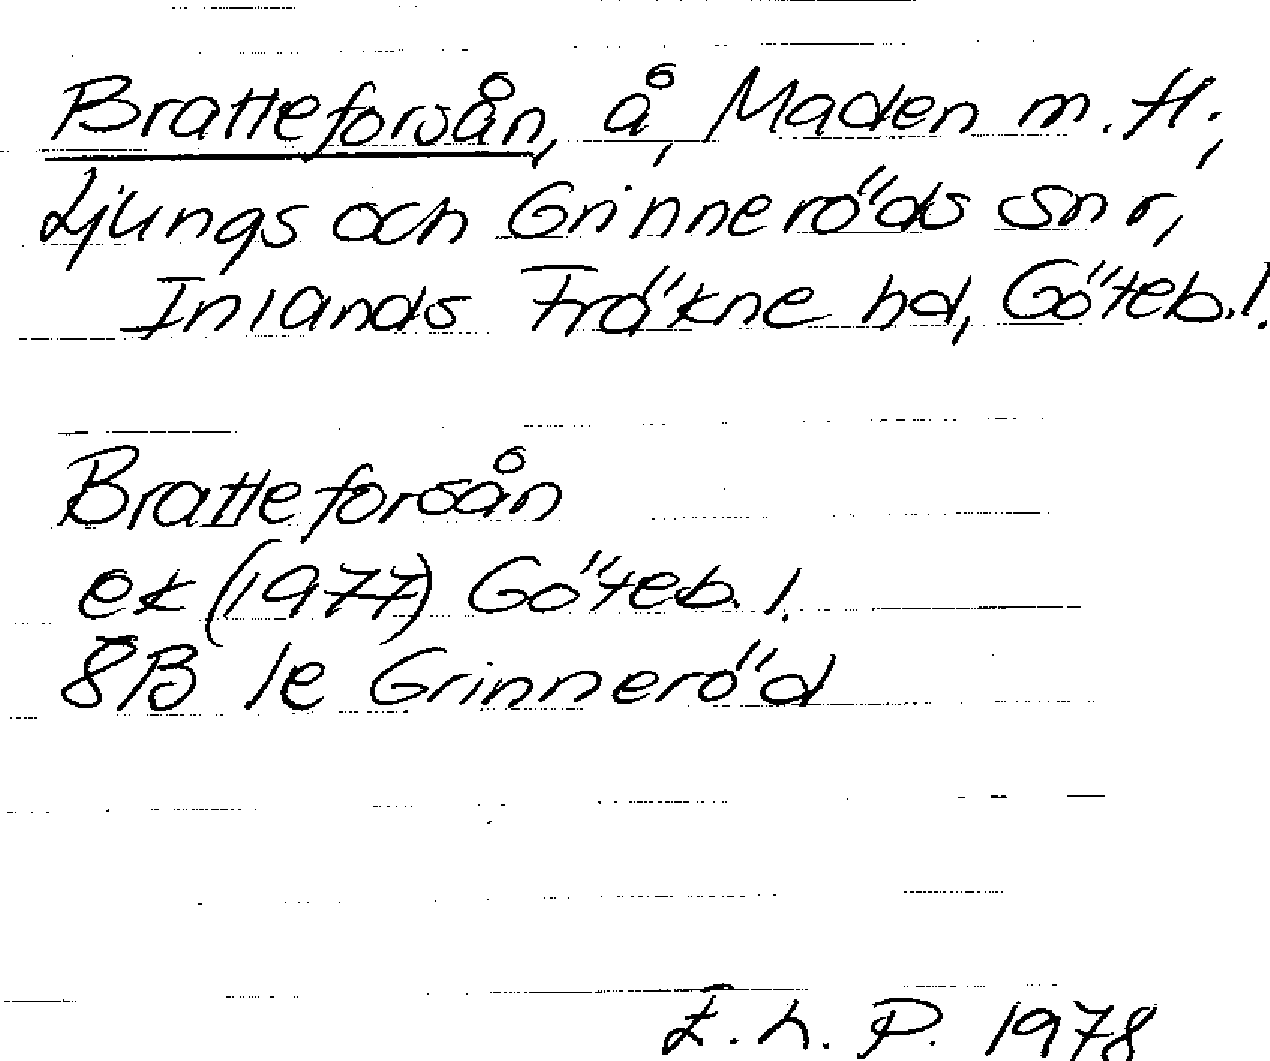 Bratteforsån, å, Maden m.fl.,
Ljungs och Grinneröds snr,
Inlands Fräkne hd, Göteb.l.
Bratteforsån
ek (1977) Göteb. l.
8B 1e Grinneröd
E. L. P. 1978